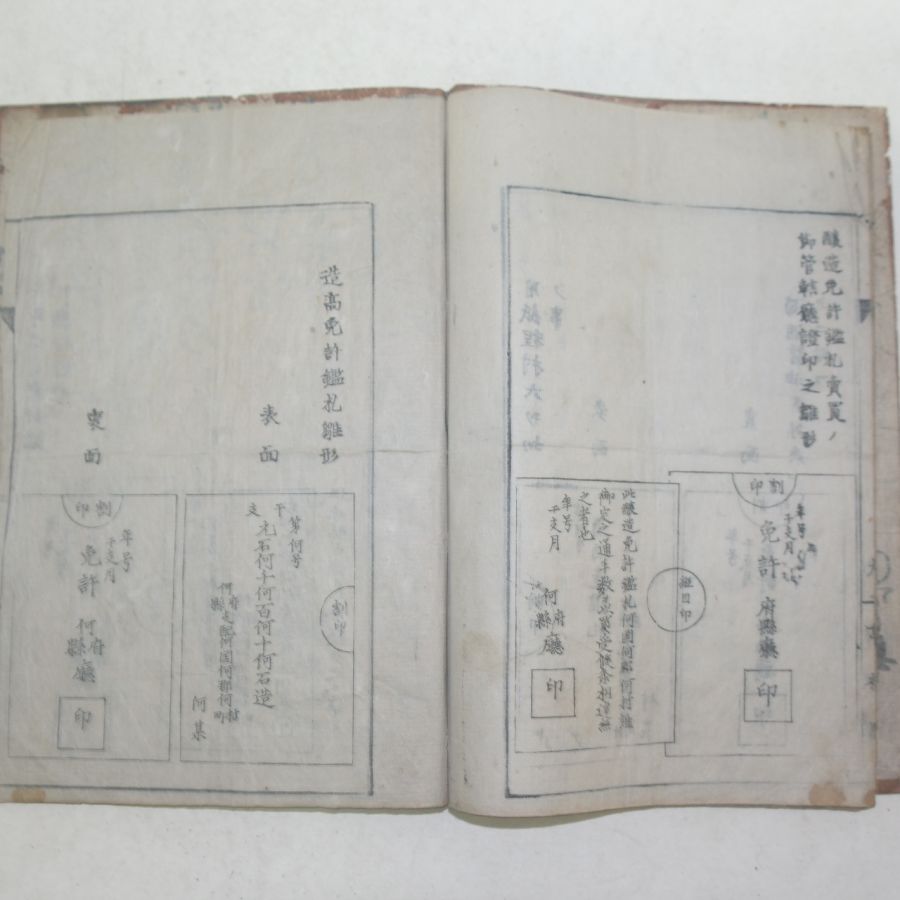 醸造免許鑑札賣買ノ
節管轄廳證印之雛形
割印
年号
干支月
免許
府縣廳
印
組目印
此醸造免許鑑札何国何郡何村誰
御定之通年数賣買受候条相違無
之者也
年号
干支月
何府縣廳
印
造高免許鑑札雛形
表面
第何号
干支
元石何千何百何十何石造
何府縣支配何国何郡何村町
何某
割印
裏面
割印
年号
干支月
免許
何府縣廳
印